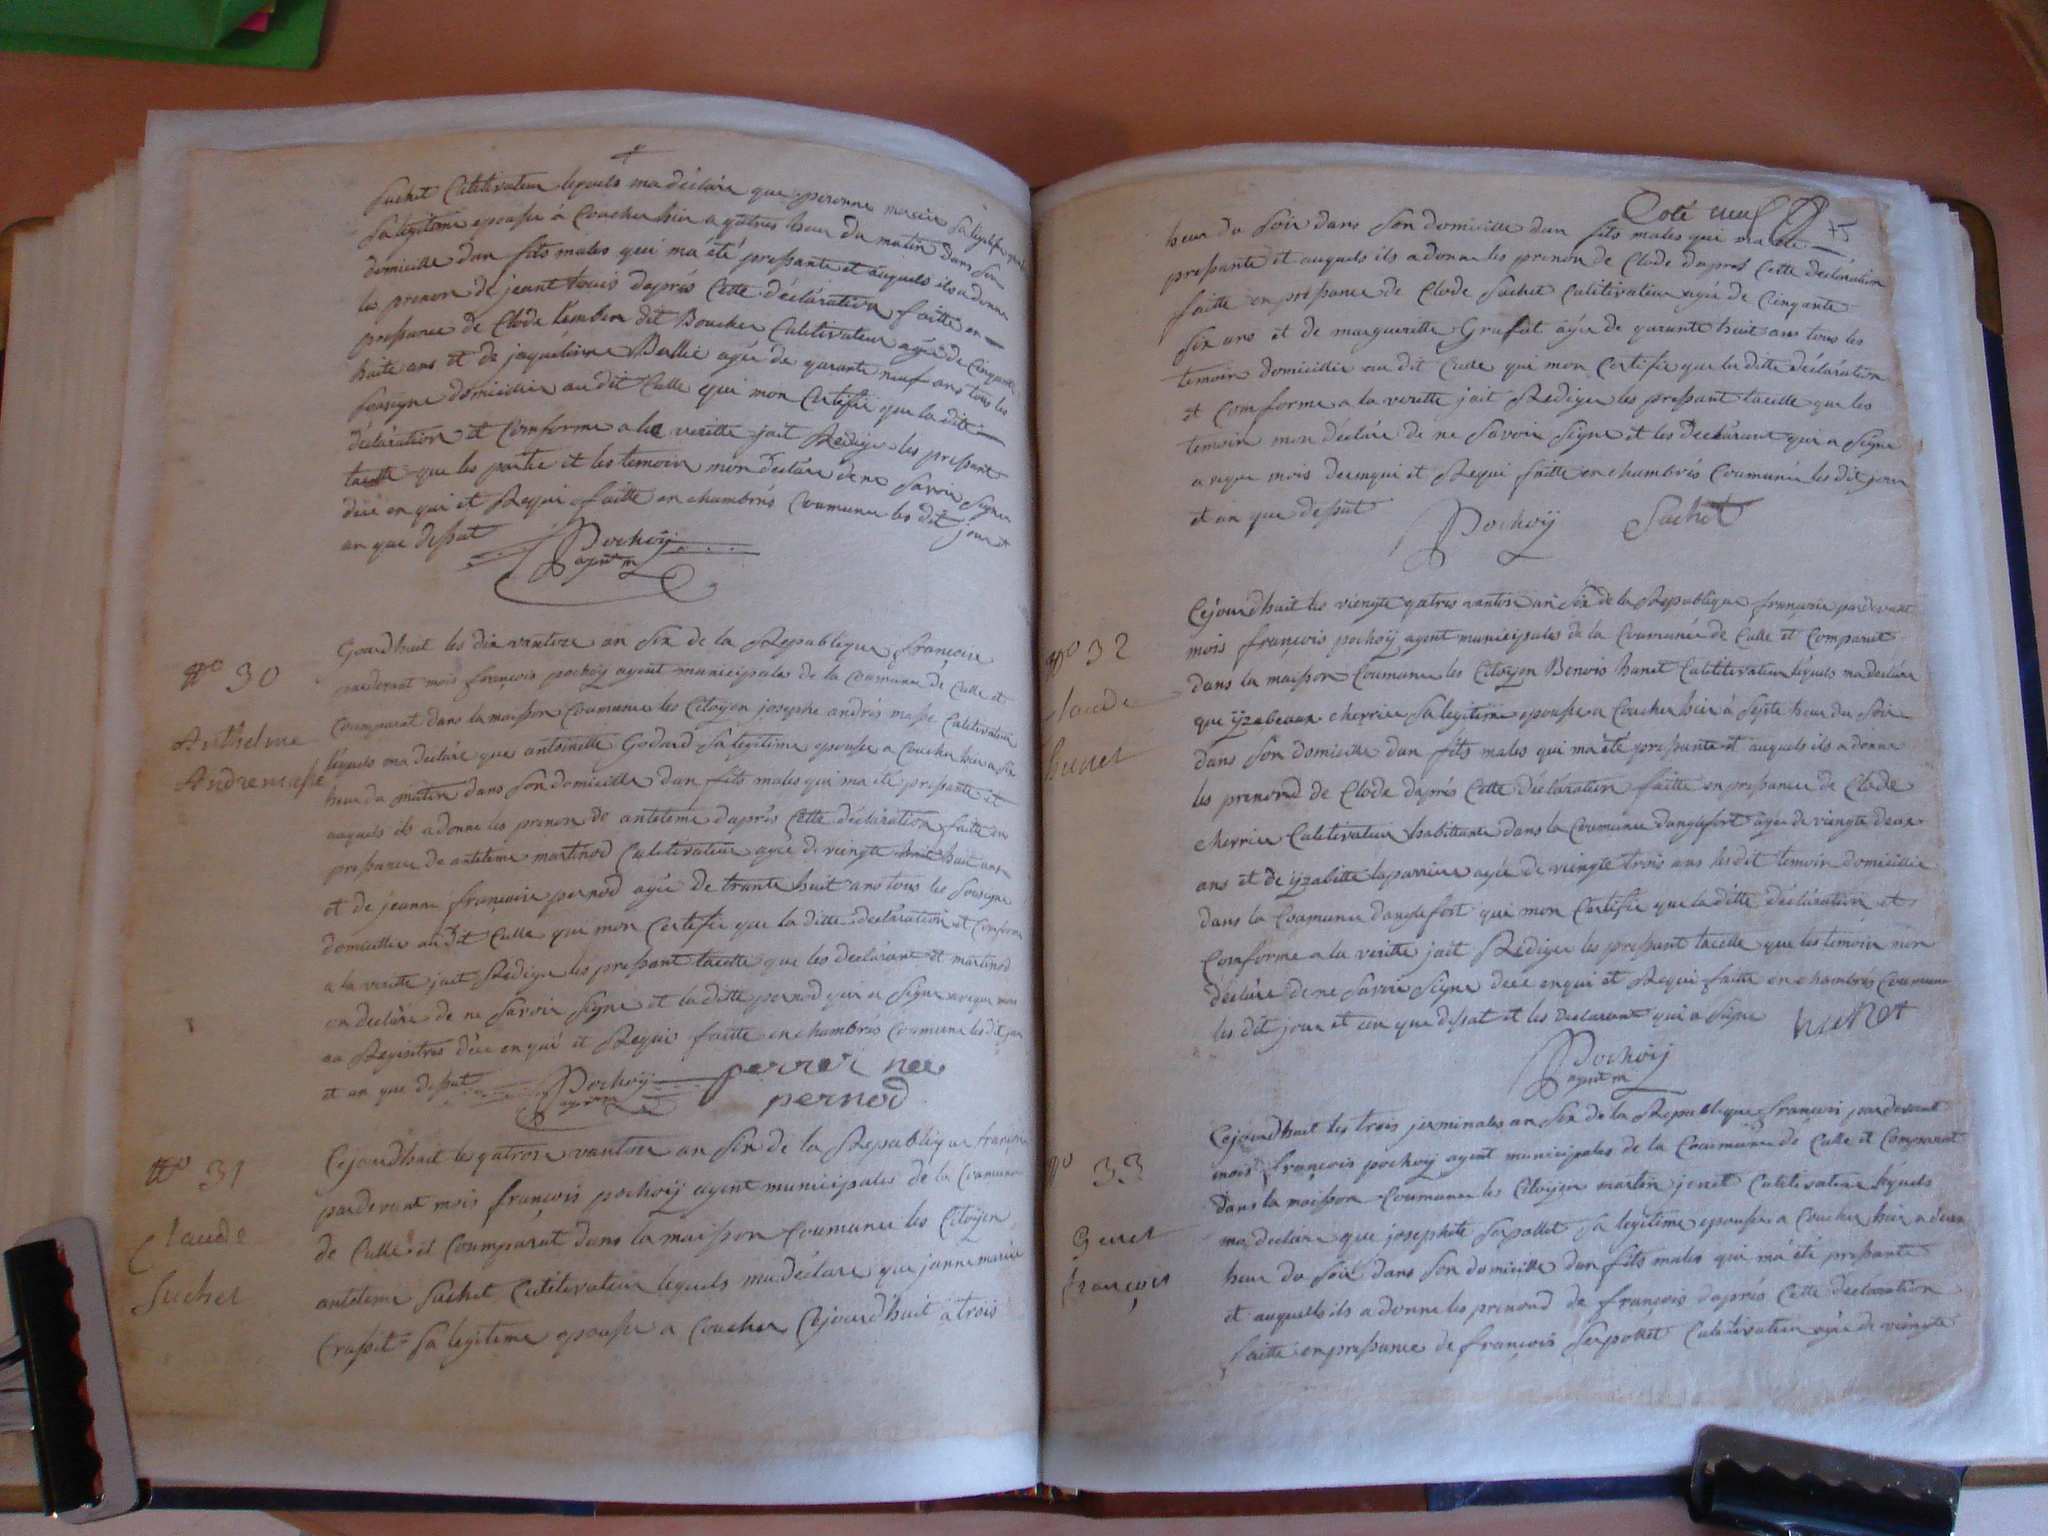 Suchet Cultivateur lequels ma déclare que peronne marie
Sa legiteme epouse à Coucher hier a quatres heur du matin dans son
domicille dun fits males qui ma été pressante et auquels ils a donne
les prenon de jeant louis daprés Cette déclaration faitte en
pressance de Clode dit Boucher Cultivateur agée de Cinquante
huite ans et de jaqueline Ballie agée de quarante neuf ans tous les
Sousigne domicillier au dit Culle qui mon Certifie que la ditte
déclaration et Comforme a la veritte jait Rediger les pressant
tacette que les partie et les temoin mon declare de ne Savoir Signe
dece en qui et Requi faitte en chambrés Coumune les dit jour et
an que dessut
Pochoÿ
agent m
N° 30
Anthelme
Andremasse
Gourdhuit les dix vantose an Six de la Republique françoise
pardevant mois françois pochoÿ agent municipales de la Coumune de Culle et
Coumparat dans la maisson Coumune les Citoÿen josephe andrés masse Cultivateur
lequels ma declare que antoinette Godard Sa legitime epouse a Coucher hier a Six
heur du matin dans Son domicille dun fits males qui ma été pressante et
auquels ils a donne les prenon de anteleme daprés Cette déclaration faitte en
pressance de anteleme martinod Cultivateur agée de viengte huit ans
et de jeanne françoise pernod agée de trante huit ans tous les Sousigne
domicillier au dit Culle qui mon Certifie que la ditte déclaration et Comforme
a la veritte jait Rediger les pressant tacette que les declarant et martinod
on declare de ne Savoir Signe et la ditte pernod qui a Signe avèque mois
au Regisitres déce en qui et Requi faitte en chambrés Coumune les dit jour
et an que dessut
Pochoÿ
pernod
N° 31
Claude
Suchet
Cejourdhuit le quatorse vantose an Six de la Republique françoise
pardevant mois françois pochoÿ agent municipales de la Coumune
de Culle et Coumparat dans la maisson Coumune les Citoÿen
anteleme Suchet Cultivateur lequels ma déclare que janne marie
Crasset Sa legiteme epouse a Coucher Cejourdhuit à trois
Coté neuf
75
heur du Soir dans Son domicille dun fits males qui ma été
pressante et auquels ils a donne les prenon de Clode daprés Cette déclaration
faitte en pressance de Clode Suchet Cultivateur agée de Cinquante
Six ans et de margueritte agée de quarante huit ans tous les
temoin domicillier au dit Culle qui mon Certifie que la ditte déclaration
et Comforme a la veritte jait Rediger les pressant tacette que les
temoin mon declare de ne Savoir Signe et les Declarant qui a Signe
aveque mois dece en qui et Requi faitte en chambrés Coumune les dit jour
et an que dessut
Pochoÿ Suchet
N° 32
Claude
hunet
Cejourdhuit les viengte quatres vantose an Six de la Republique françoise pardevant
mois françois pochoÿ agent municipales de la Coumune de Culle et Comparut
dans la maisson Coumune les Citoÿen Benois hunet Cultivateur lequels ma declare
que ÿzabeaux cherrier Sa legitime epouse a Coucher hier à Septe heur du Soir
dans Son domicille dun fits males qui ma été pressante et auquels ils a donne
les prenond de Clode daprés Cette déclaration faitte en pressance de Clode
cherrier Cultivateur habittante dans la Coumune danglefort agée de viengte deux
ans et de ÿzabitte laparriere agée de viengte trois ans les dit temoin domicillie
dans la Coumune danglefort qui mon Certifie que la ditte déclaration et
Comforme a la veritte jait Rediger les pressant tacette que les temoin mon
déclare de ne Savoir Signe dece en qui et Requi faitte en chambrés Coumune
les dit jour et an que dessut et les Declarant qui a Signe hunot
Pochoÿ
agent m
N° 33
Genet
françois
Cejourdhuit les trois jerminales an Six de la Republique françois pardevant
mois françois pochoÿ agent municipales de la Coumune de Culle et Comparat
dans la maisson Coumune les Citoÿen martin jenet Cultivateur lequels
ma declare que josephte Serpollet Sa legiteme epouse a Coucher hier a deux
heur du Soir dans Son domicille dun fits males qui ma été pressante
et auquels ils a donne les prenond de françois daprés Cette declaration
faitte en pressance de françois Serpollet Cultivateur agée de viengte